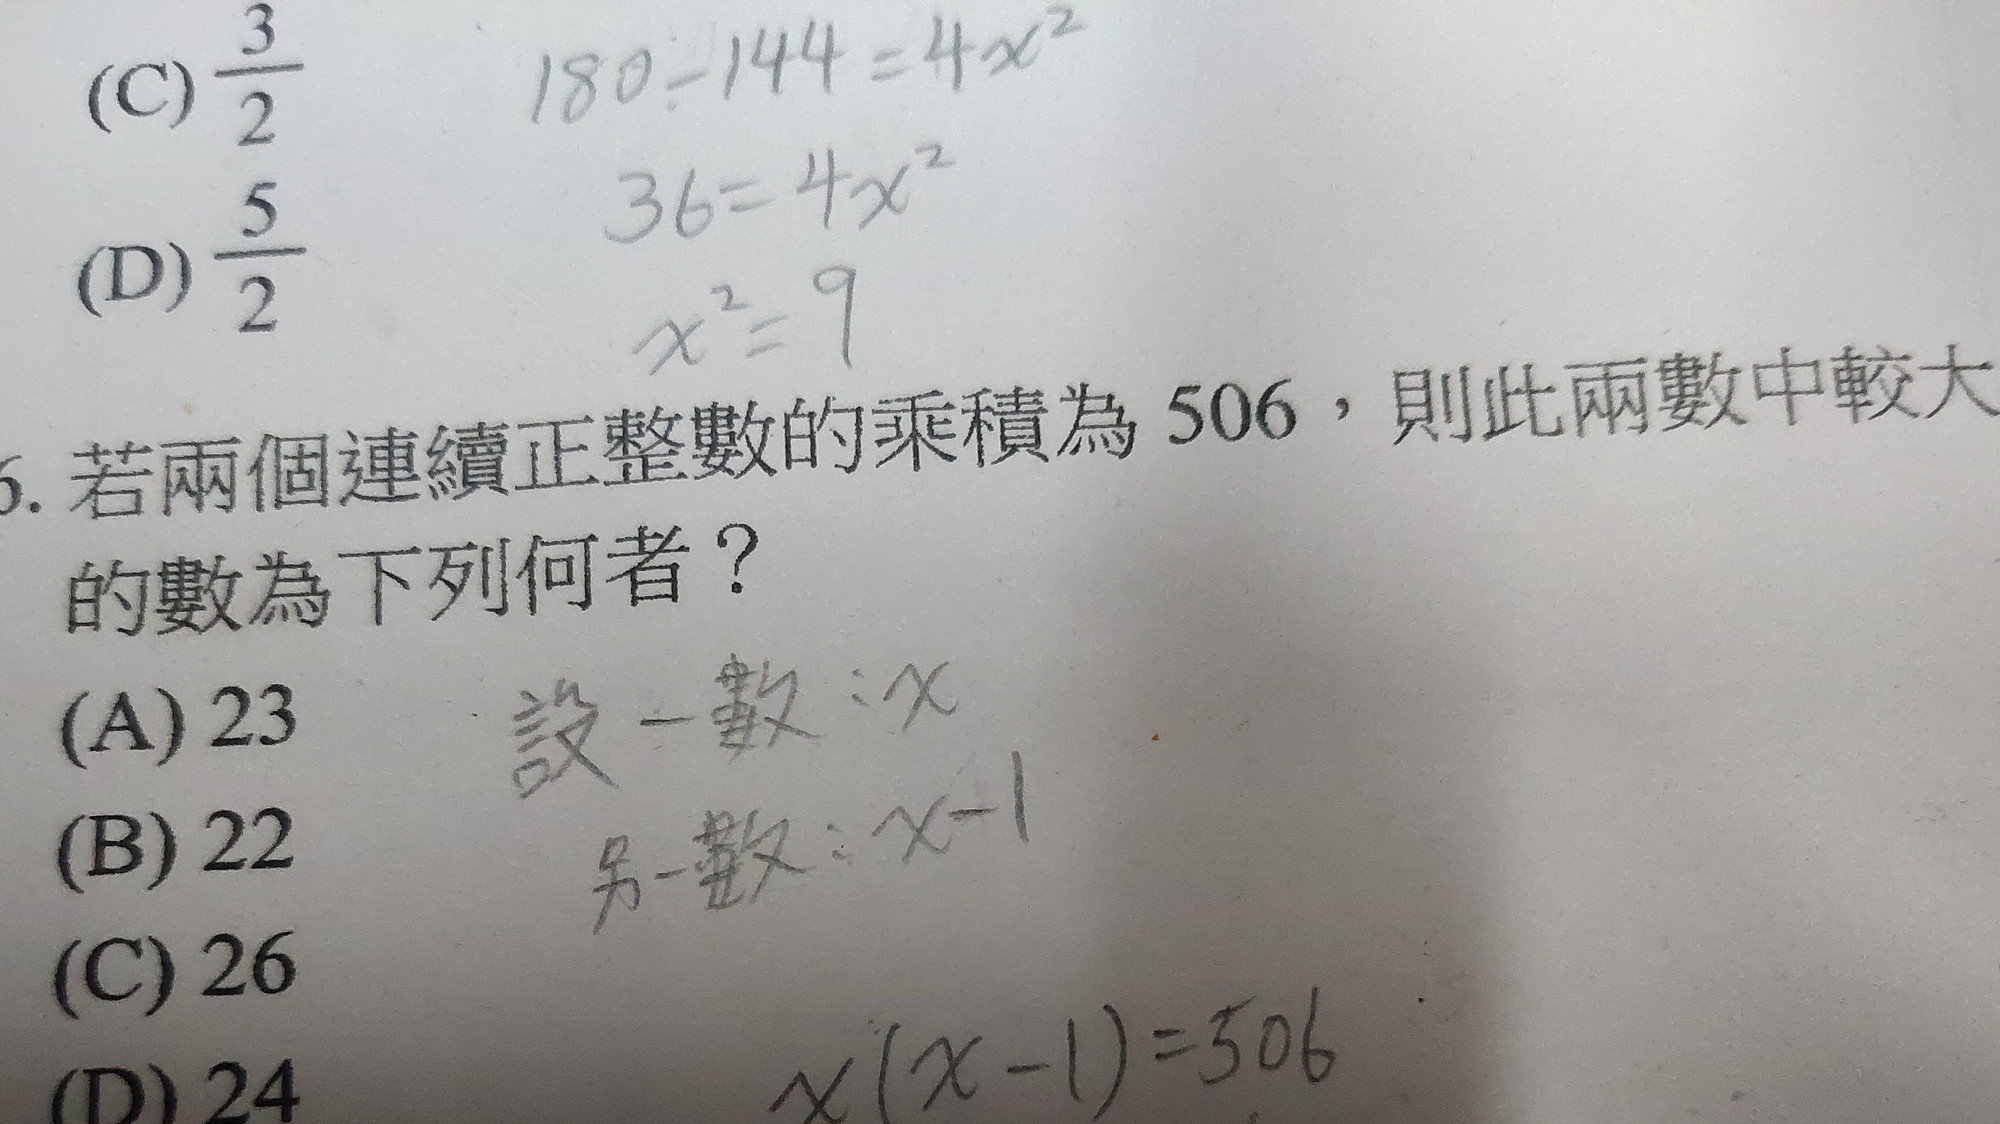 (C) 3/2
180-144=4x²
36=4x²
(D) 5/2
x²=9
6. 若兩個連續正整數的乘積為 506，則此兩數中較大
的數為下列何者？
(A) 23
設一數：x
(B) 22
另一數：x-1
(C) 26
(D) 24
x(x-1)=506